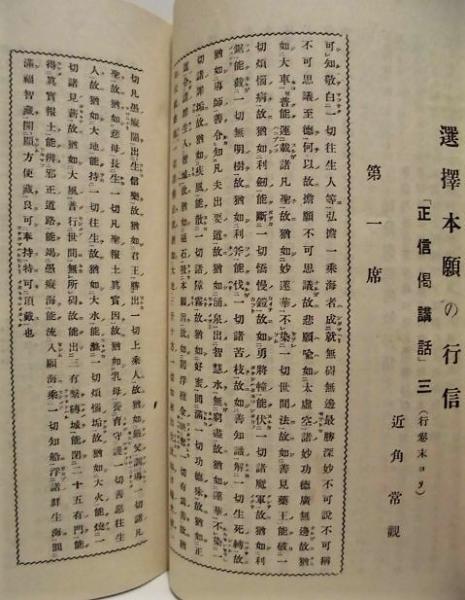 選擇本願の行信
「正信偈講話」三（行卷末ヨリ）
近角常觀
第一席
可知敬白一切往生人等弘誓一乘海者成就無碍無邊最勝深妙不可說不可稱
不可思議至德何以故誓願不可思議故悲願喩如太虛空諸妙功德廣無邊故猶
如大車普能運載諸凡聖故猶如妙蓮華不染一切世間法故如善見藥王能破一
切煩惱病故猶如利劍能斷一切憍慢鎧故如勇將幢能伏一切諸魔軍故猶如利
鋸能截一切無明樹故猶如利斧能伐一切諸苦枝故如善知識解一切生死縛故
猶如導師善令知凡夫出要道故猶如涌泉出智慧水無窮盡故猶如蓮華不染一
切諸罪垢故猶如疾風能散一切諸障霧故猶如好蜜圓滿一切功德味故猶如正
道令諸群生入智城故猶如磁石本願因故如閻浮檀金
切凡愚癡開出生信樂故猶如君王勝出一切上乘人故猶如嚴父訓導一切諸凡
聖故猶如悲母長生一切凡聖報土眞實因故猶如乳母養育守護一切善惡往生
人故猶如大地能持一切往生故猶如大水能滌一切煩惱垢故猶如大火能燒一
切諸見薪故猶如大風普行世間無所碍故能出三有繫縛城能閉二十五有門能
得眞實報土能辨邪正道路能竭愚癡海能流入願海乘一切智船浮諸群生海圓
滿福智藏開顯方便藏良可奉持特可頂戴也